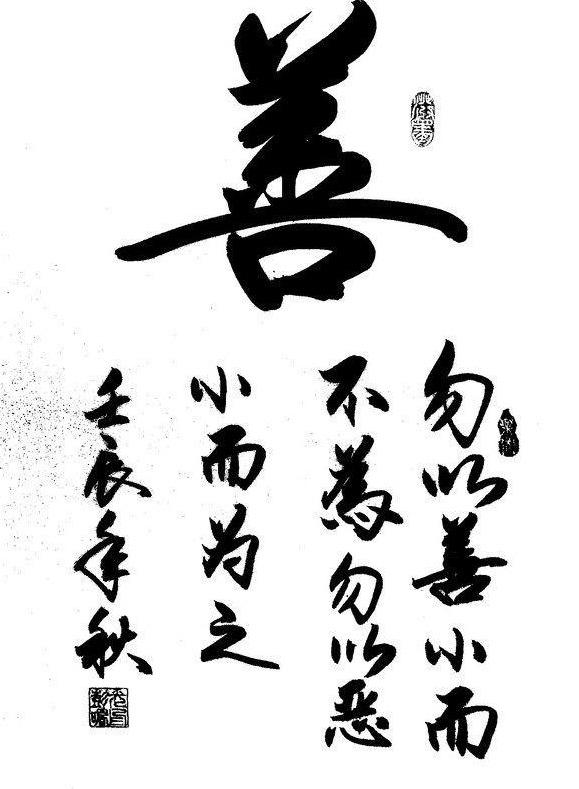 善
勿以善小而
不為勿以惡
小而为之
壬辰年秋